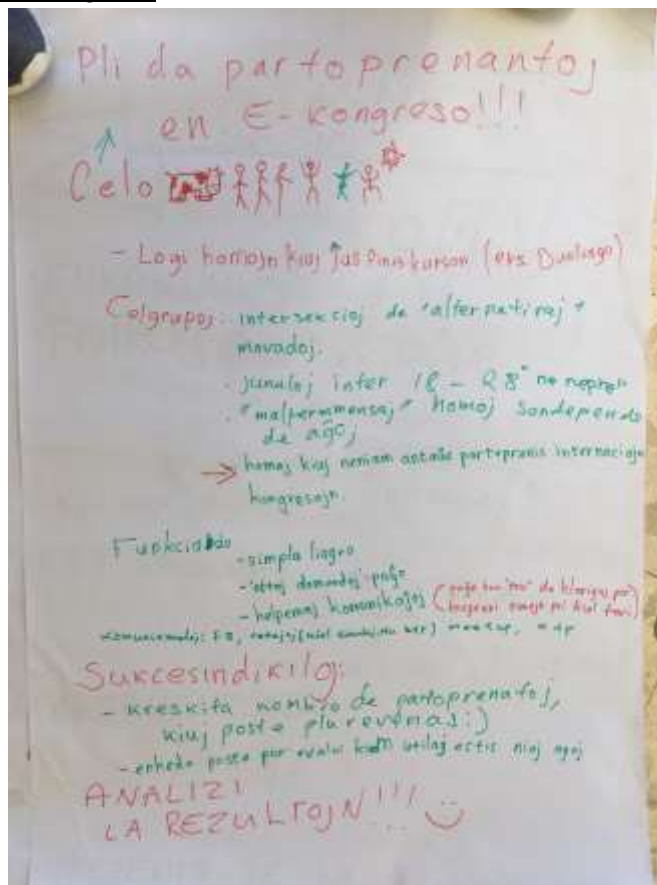 Pli da partoprenantoj
en E-kongreso!!!
Celo
- Logi homojn kiuj ĵus finis kurson (ekz. Duolingo)
Celgrupoj: intersekcioj de "alternativaj"
movadoj.
- junuloj inter 18 - 28
- "malfermmensaj" homoj sendepende
de aĝoj
→ homoj kiuj neniam antaŭe partoprenis internaciajn
kongresojn.
Funkciado
- simpla
- 'oftaj demandoj' paĝo
- helpemaj komunikaĵoj
FB, meetup,
Sukcesindikiloj:
- kreskita nombro de partoprenatoj,
kiuj poste plu revenas :)
- enketo poste por evalui kiom utilaj estis niaj agoj
ANALIZI
LA REZULTOJN!!!